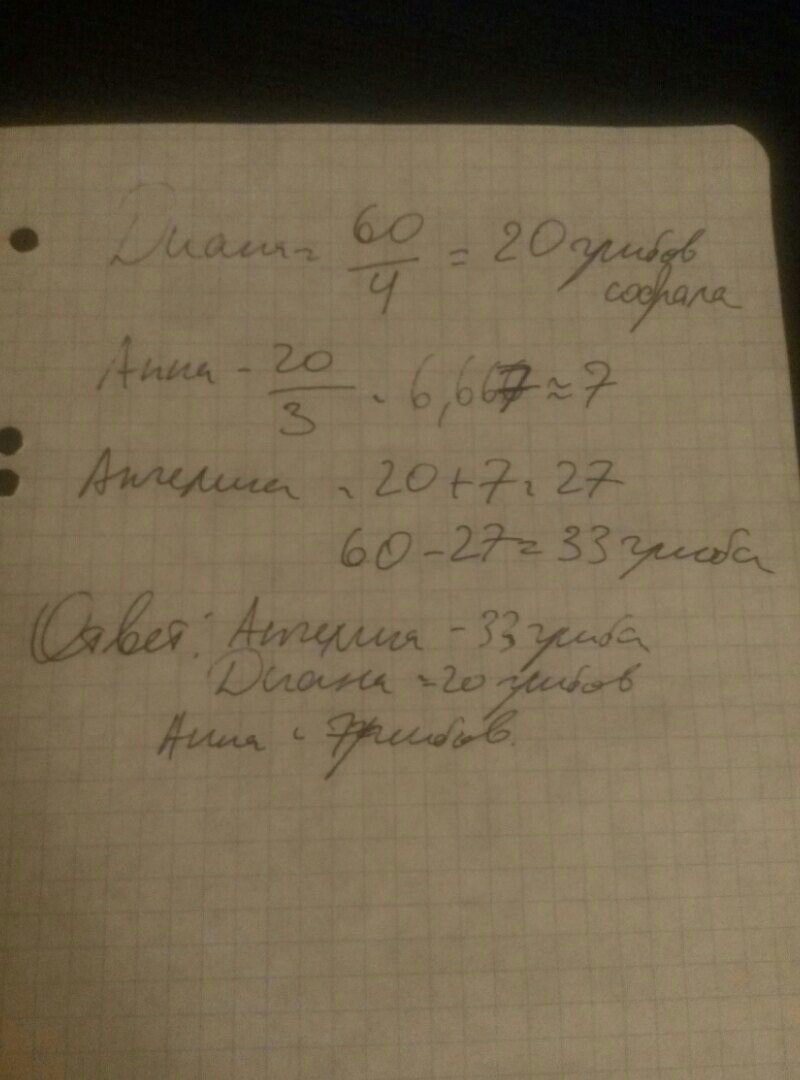 Диана = 60/4 = 20 грибов
собрала
Анна - 20/3 = 6,667 ≈ 7
Ангелина = 20+7 = 27
60-27 = 33 гриба
Ответ: Ангелина - 33 гриба
Диана = 20 грибов
Анна = 7 грибов.